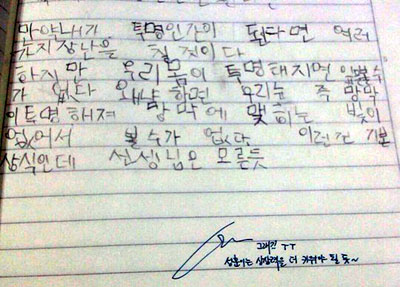 만약내가 투명인간이 된다면 여러
가지장난을 칠 것이다
하지만 우리몸이 투명해지면 앞볼수
가 없다 왜냐하면 우리눈 즉 망막
이투명해져 망막에 맺히는 빛이
없어서 볼수가 없다. 이런건 기본
상식인데 선생님은 모른듯
그래킨 ㅜㅜ
성훈이는 상상력을 더 키워야 될 듯~